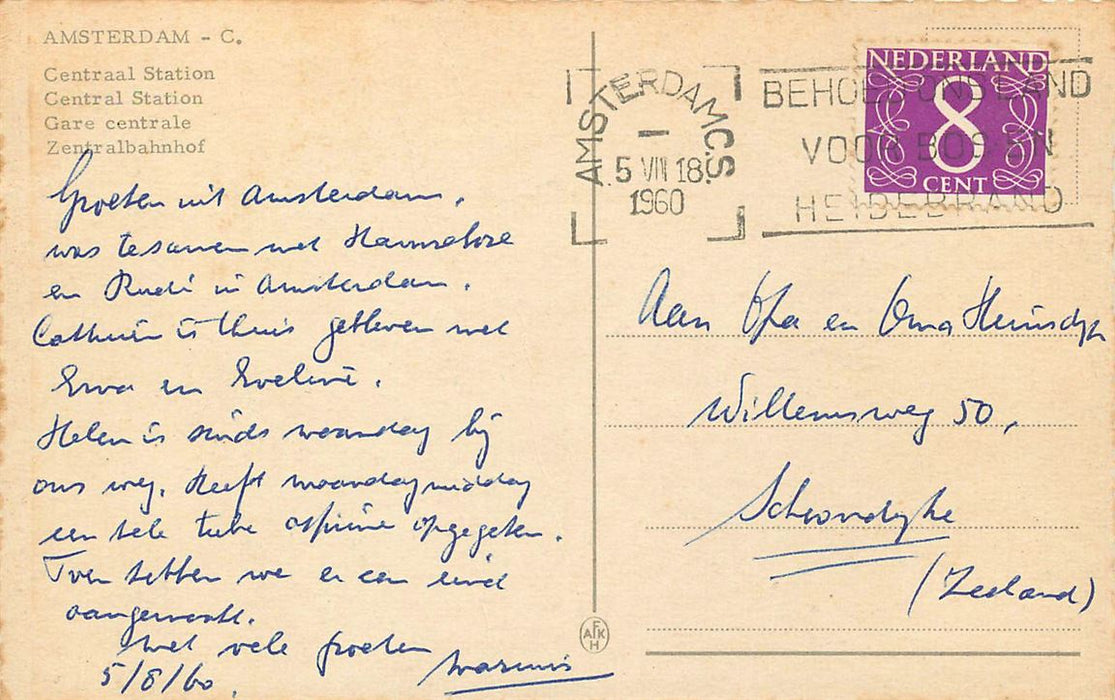 AMSTERDAM - C.
Centraal Station
Central Station
Gare centrale
Zentralbahnhof
Groeten uit Amsterdam,
was tesamen met Hannelore
en Rudi in Amsterdam.
is thuis gebleven met
en Eveline.
Helen is sinds maandag bij
ons weg. Heeft maandagmiddag
een hele tube aspirine opgegeten.
Toen hebben we er een eind
aangemaakt.
Met vele groeten
5/8/60.
AMSTERDAM C.S.
5 VIII 18
1960
BEHOED ONS LAND
VOOR BOS- EN
HEIDEBRAND
NEDERLAND
8
CENT
Aan Opa en Oma
Willemsweg 50,
Schoondijke
(Zeeland)
AFKH